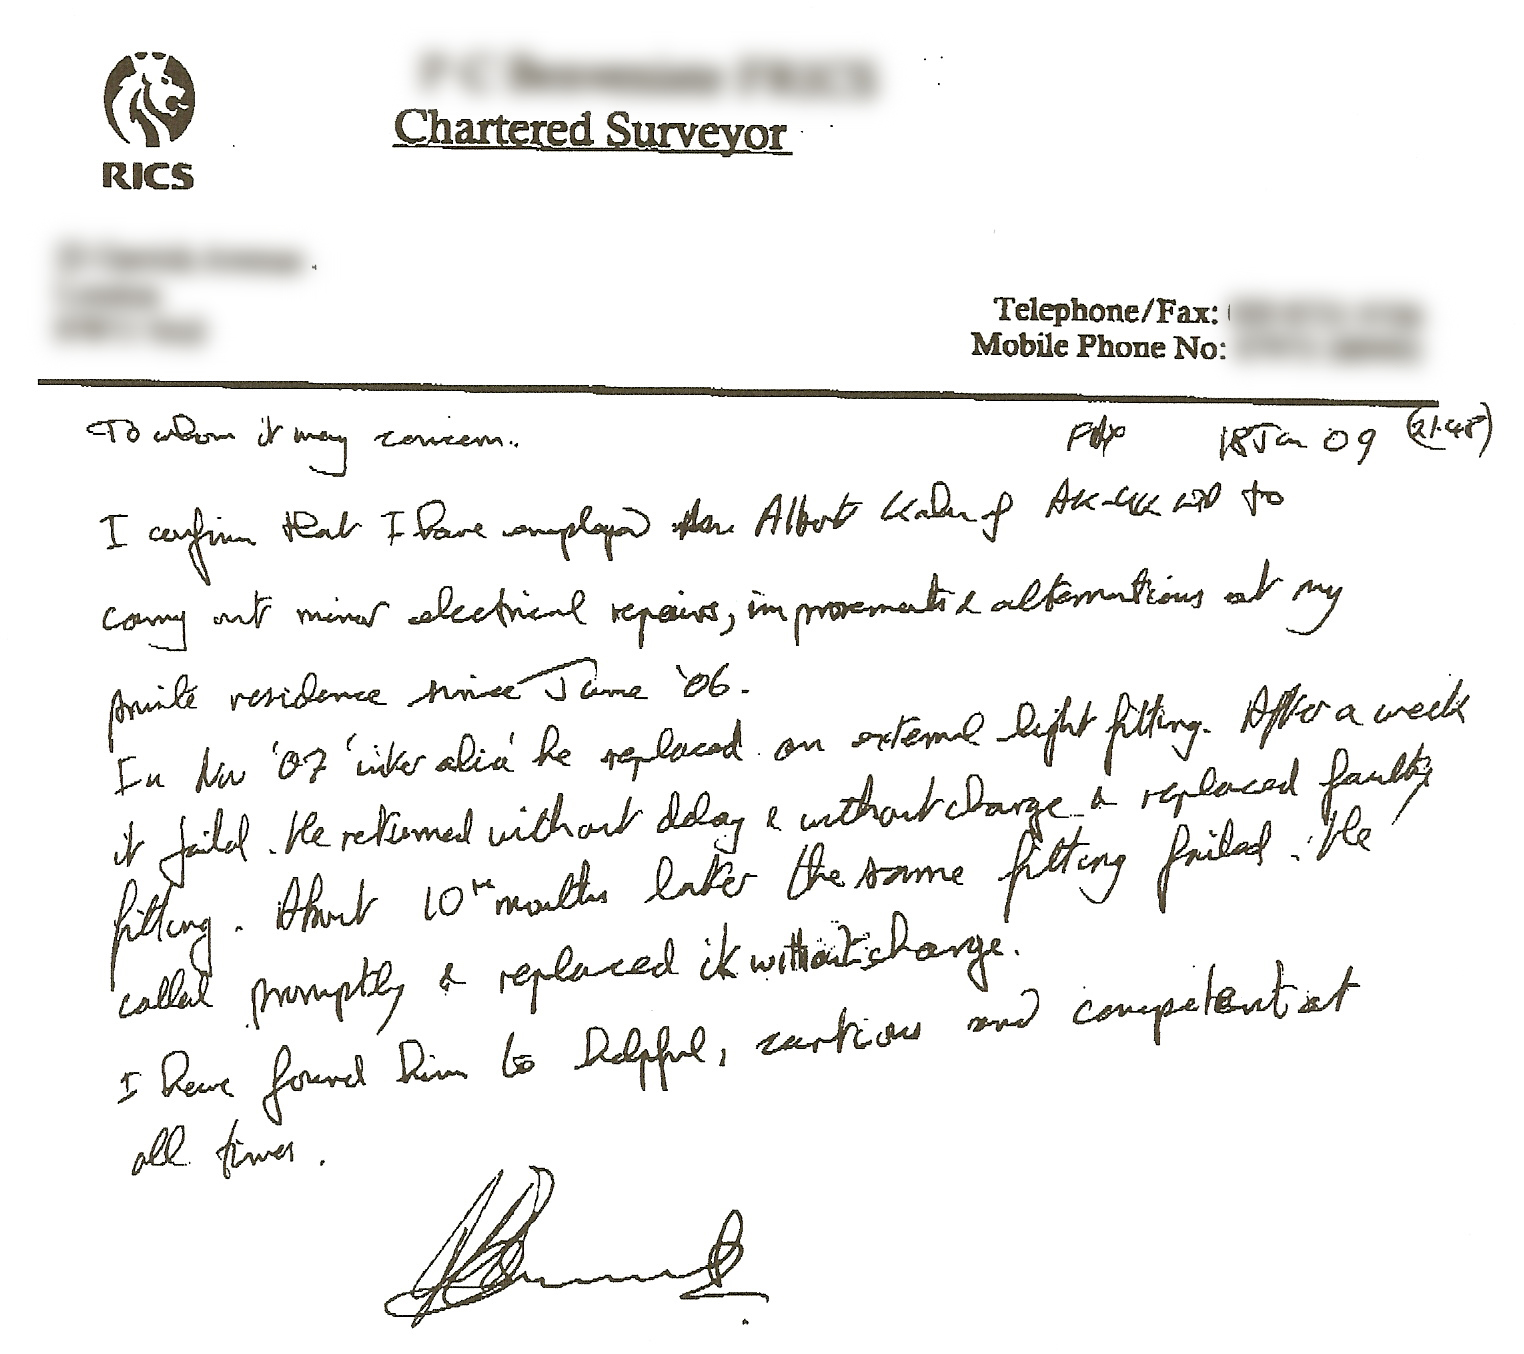 RICS
Chartered Surveyor
Telephone/Fax:
Mobile Phone No:
To whom it may concern.
Fax 18 Jan 09 (21.48)
I confirm that I have employed Albert of AK-UK LTD to
carry out minor electrical repairs, improvements & alternations at my
private residence since June '06.
In Nov '07 'inter alia' he replaced an external light fitting. After a week
it failed. He returned without delay & without charge & replaced faulty
fitting. About 10 months later the same fitting failed. He
called promptly & replaced it without charge.
I have found him to helpful, cautious and competent at
all times.